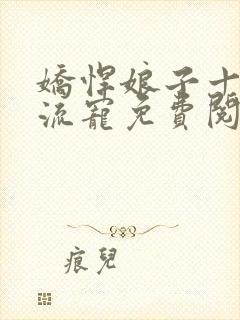 嬌悍娘子十
流寵免費閱
痕兒